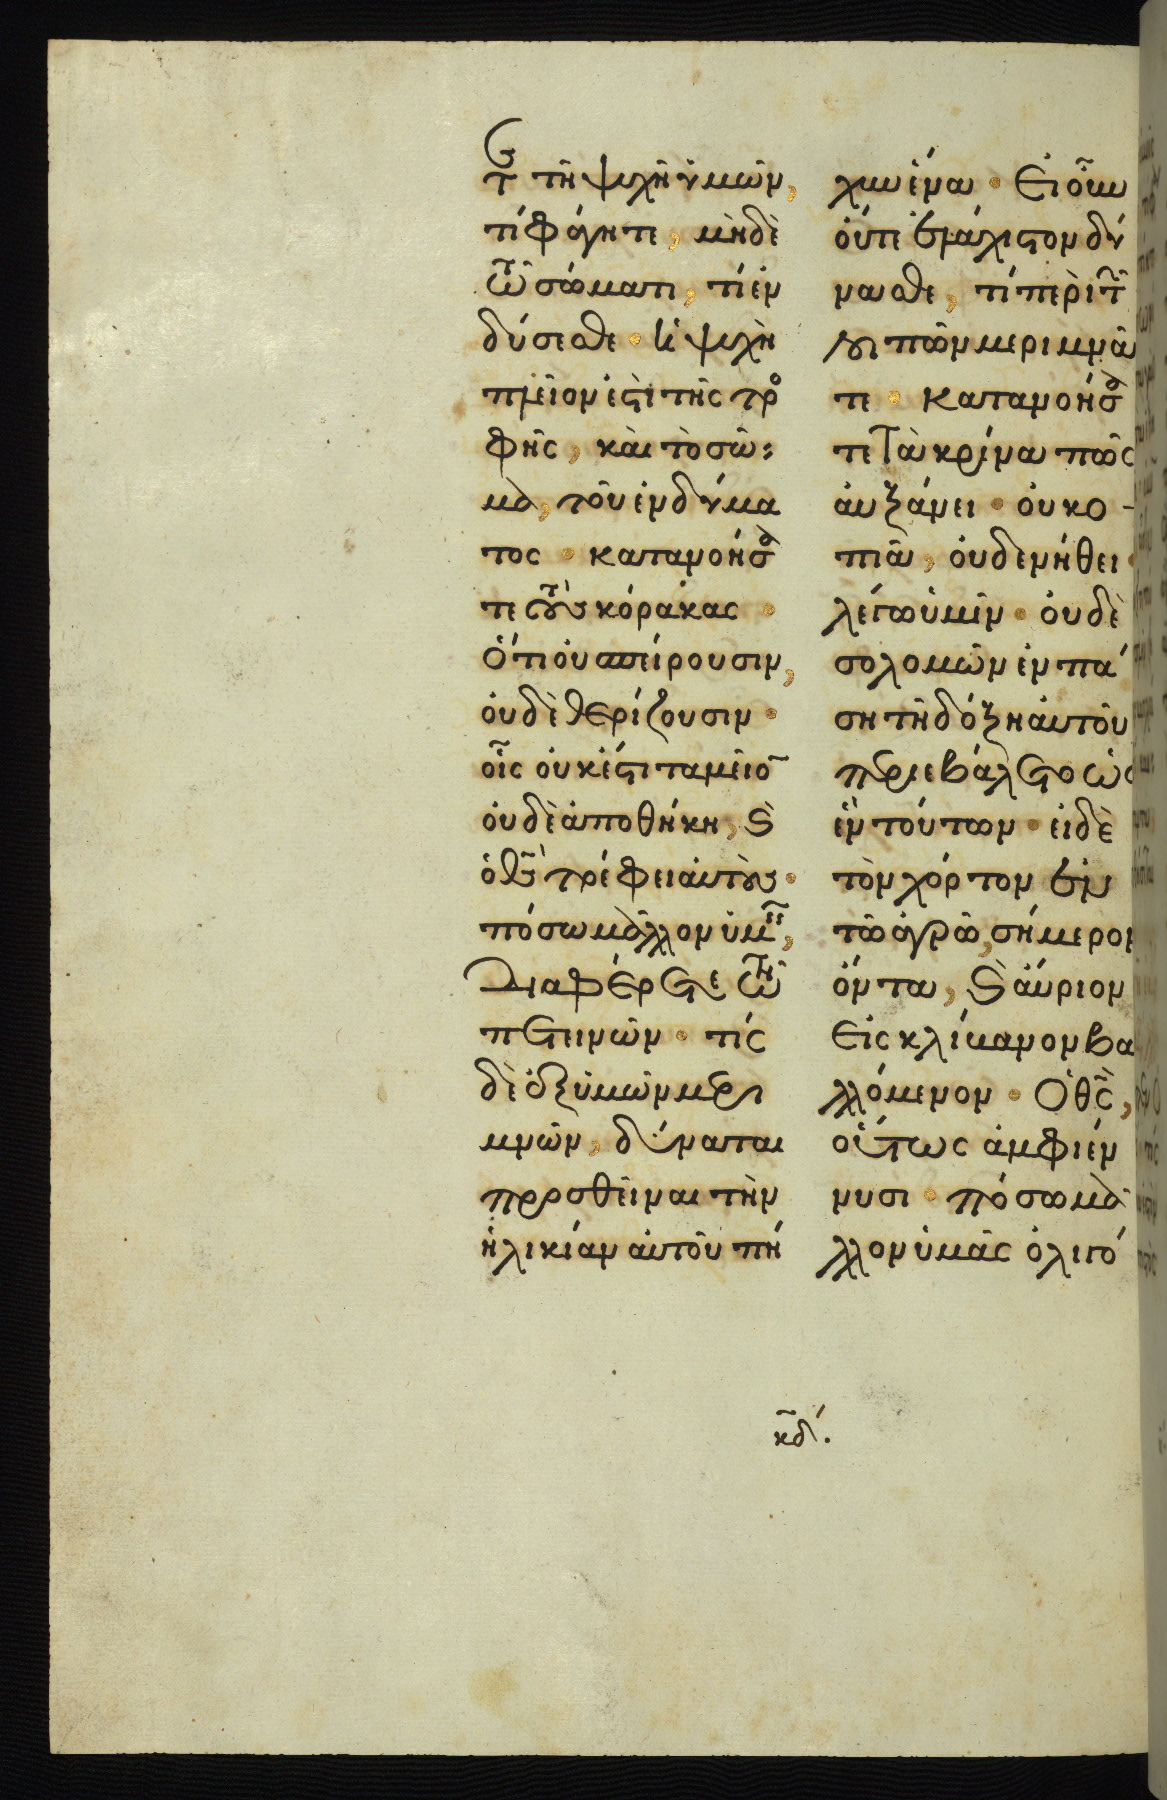 τε τῆ ψυχῆ ὑμῶν,
τί φάγητε, μὴδὲ
τῶ σώματι, τί ἐν
δύσεσθε· ἡ ψυχὴ
πλεῖον ἐστὶ τῆς τρο
φῆς, καὶ τὸ σῶ:
μα, τοῦ ἐνδύμα
τος· κατανοήσα
τε τοὺς κόρακας·
Ὅτι οὐ σπείρουσιν,
οὐδὲ θερίζουσιν·
οἷς οὐκ ἔστι ταμεῖον
οὐδὲ ἀποθήκη, καὶ
ὁ θς τρέφει αὐτούς·
πόσω μᾶλλον ὑμεῖς,
Διαφέρετε τῶν
πετεινῶν· τίς
δὲ ἐξ ὑμῶν μερι
μνῶν, δύναται
προσθεῖναι τὴν
ἡλικίαν αὐτοῦ πῆ
χυν ἕνα· Εἰ οὖν
οὔτε ἐλάχιστον δύ
νασθε, τί περὶ τῶν
λοιπῶν μεριμνᾶ
τε· κατανοήσα
τε Τὰ κρίνα πῶς
αὐξάνει· οὐ κο-
πιᾶ, οὐδὲ νήθει·
λέγω ὑμῖν· οὐδὲ
σολομῶν ἐν πά
ση τῆ δόξη αὐτοῦ
περιεβάλετο ὡς
ἓν τούτων· εἰ δὲ
τὸν χόρτον ἐν
τῶ ἀγρῶ, σήμερον
ὄντα, καὶ αὔριον
Εἰς κλίβανον βα
λλόμενον· Ὁ θς,
οὕτως ἀμφιέν
νυσι· πόσω μᾶ
λλον ὑμᾶς ὀλιγό
κδ.